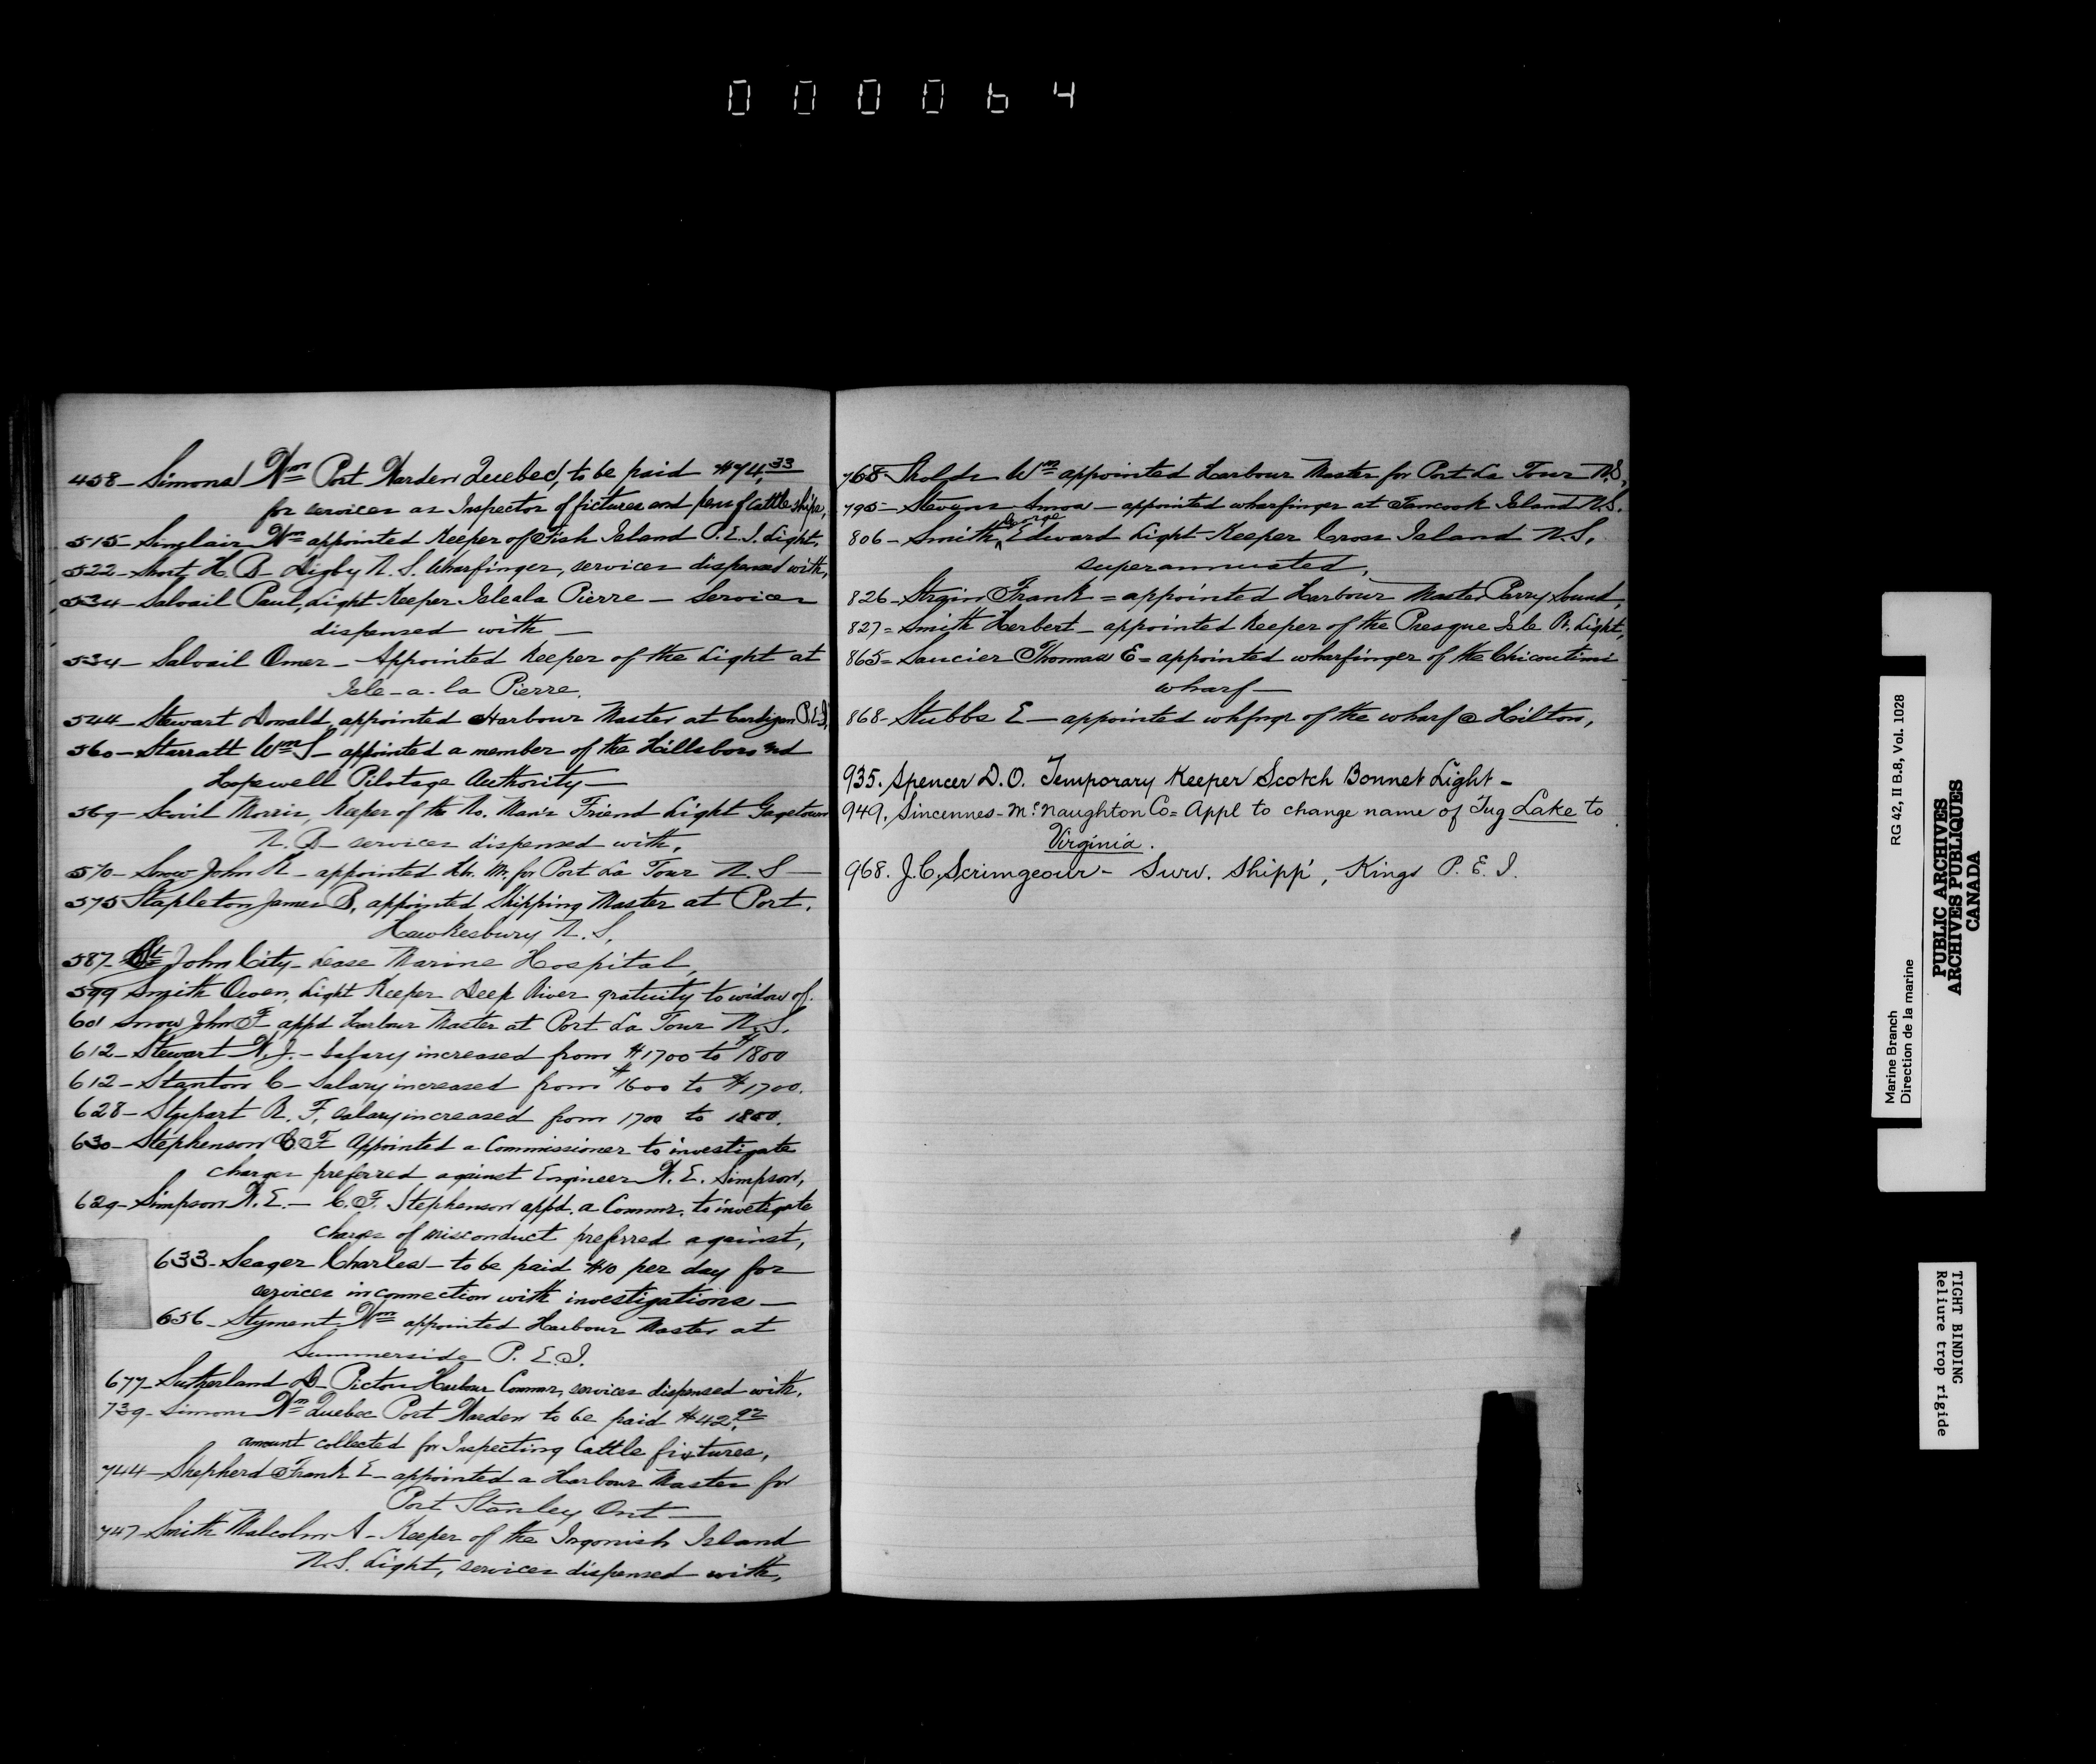 000064
458 - Simons Wm Port Warden Quebec, to be paid $74.33
for services as Inspector of fictures and pens of Cattle ships,
515 - Sinclair Wm appointed Keeper of Fish Island P.E.I. Light,
522 - Short H. B - Digby N.S. Wharfinger, services dispensed with,
534 - Salvail Paul, Light Keeper Isle a la Pierre - Services
dispensed with -
534 - Salvail Omer - Appointed Keeper of the Light at
Isle - a - la Pierre.
544 - Stewart Donald, appointed Harbour Master at Cardigan P.E.I,
560 - Starratt Wm S - appointed a member of the Hillsboro and
Hopewell Pilotage Authority -
569 - Scovil Morris, Keeper of the No. Man's Friend Light Gagetown
N. B - services dispensed with,
570 - Snow John R - appointed Hr. M. for Port La Tour N. S -
575 Stapleton James B, appointed Shipping Master at Port.
Hawkesbury N. S,
587 - St John City - Lease Marine Hospital,
599 Smith Owen, Light Keeper Deep River gratuity to widow of.
601 Snow John F appd Harbour Master at Port La Tour N.S.
612 - Stewart W. J. - Salary increased from $1700 to $1800
612 - Stanton C - Salary increased from $1600 to $1700.
628 - Stupart R. F, salary increased from 1700 to 1800.
630 - Stephenson C.F Appointed a Commissioner to investigate
charges preferred against Engineer W. E. Simpson,
629 - Simpson W. E. - C. F. Stephenson appd. a Commr. to invetigate
charges of misconduct preferred against,
633 - Seager Charles - to be paid $10 per day for
services in connection with investigations -
656 - Styment Wm appointed Harbour Master at
Summerside P. E. I.
677 - Sutherland D - Pictou Harbour Commr, services dispensed with.
739 - Simons Wm Quebec Port Warden to be paid $42.92
amount collected for Inspecting Cattle fixtures,
744 - Shepherd Frank E - appointed a Harbour Master for
Port Stanley Ont -
747 - Smith Malcolm A - Keeper of the Ingonish Island
N.S. Light, services dispensed with,
768 - Wm appointed Harbour Master for Port La Tour N.S,
795 - Stevens Amos - appointed wharfinger at Tancook Island N.S.
806 - Smith, George Edward Light Keeper Cross Island N.S,
superannuated,
826 - Frank = appointed Harbour Master Parry Sound,
827 = Smith Herbert - appointed Keeper of the Presque Isle R. Light,
865 = Saucier Thomas E = appointed wharfinger of the Chicoutimi
wharf -
868 - Stubbs E - appointed whfngr of the wharf @ Hilton,
935. Spencer D.O. Temporary Keeper Scotch Bonnet Light -
949. Sincennes - McNaughton Co = Appl to change name of Tug Lake to
Virginia.
968. J.C. Scrimgeour - Surv. Shipp', Kings P. E. I.
Marine Branch
Direction de la marine
RG 42, II B.8, Vol. 1028
PUBLIC ARCHIVES
ARCHIVES PUBLIQUES
CANADA
TIGHT BINDING
Reliure trop rigide